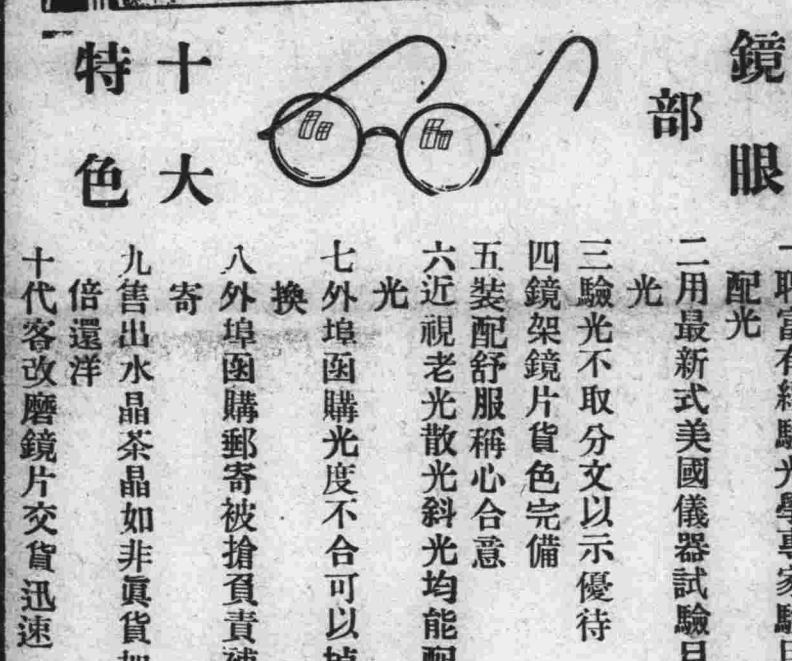 鏡眼
部
十大
特色
一聘富有經驗光學專家驗目
配光
二用最新式美國儀器試驗目
光
三驗光不取分文以示優待
四鏡架鏡片貨色完備
五裝配舒服稱心合意
六近視老光散光斜光均能配
光
七外埠函購光度不合可以掉
換
八外埠函購郵寄被搶負責補
寄
九售出水晶茶晶如非眞貨加
倍還洋
十代客改磨鏡片交貨迅速